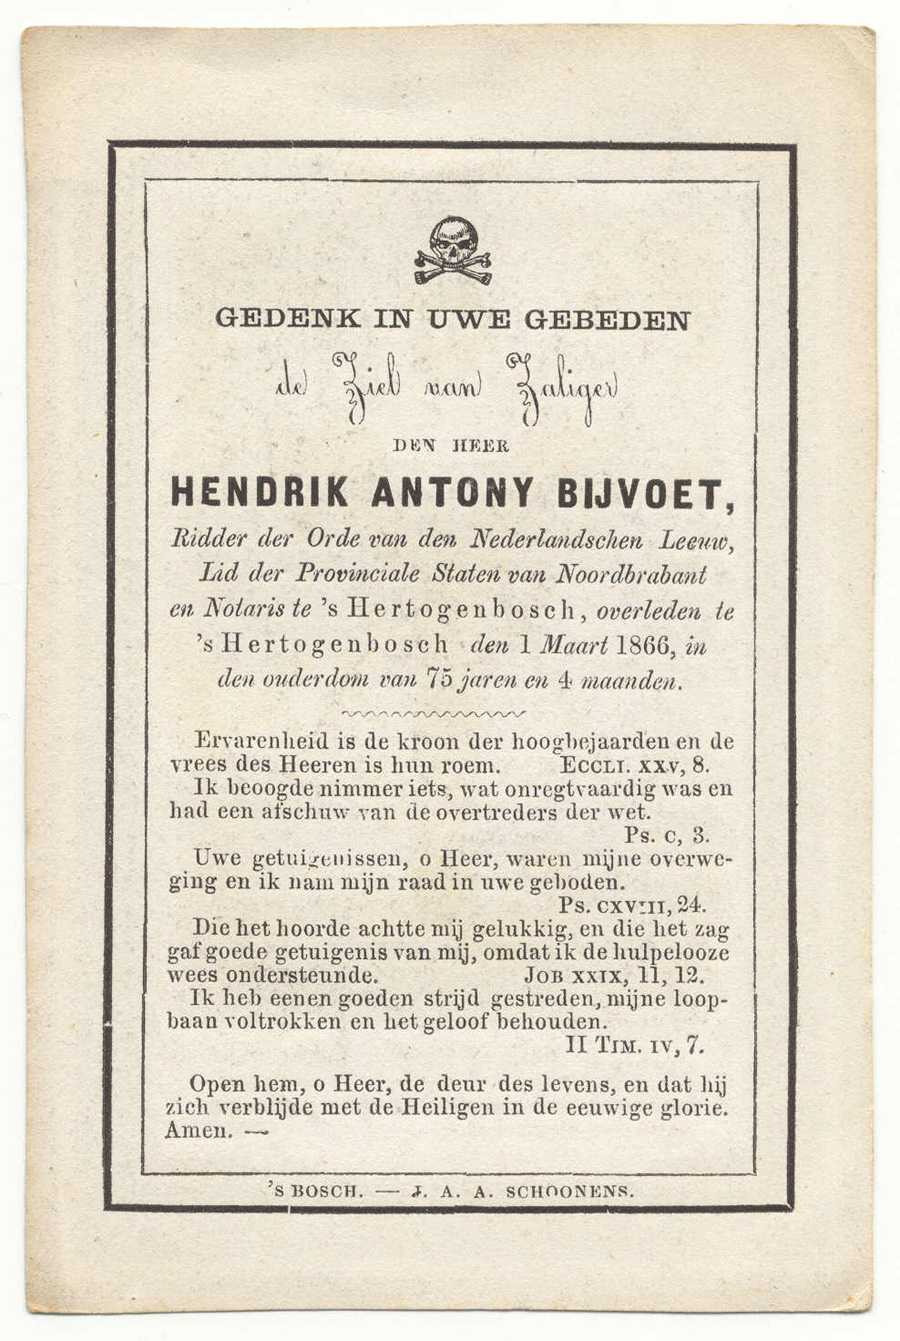 GEDENK IN UWE GEBEDEN
de Ziel van Zaliger
DEN HEER
HENDRIK ANTONY BIJVOET,
Ridder der Orde van den Nederlandschen Leeuw,
Lid der Provinciale Staten van Noordbrabant
en Notaris te 's Hertogenbosch, overleden te
's Hertogenbosch den 1 Maart 1866, in
den ouderdom van 75 jaren en 4 maanden.
Ervarenheid is de kroon der hoogbejaarden en de
vrees des Heeren is hun roem. ECCLI. XXV, 8.
Ik beoogde nimmer iets, wat onregtvaardig was en
had een afschuw van de overtreders der wet.
Ps. C, 3.
Uwe getuigenissen, o Heer, waren mijne overwe-
ging en ik nam mijn raad in uwe geboden.
Ps. CXVIII, 24.
Die het hoorde achtte mij gelukkig, en die het zag
gaf goede getuigenis van mij, omdat ik de hulpelooze
wees ondersteunde. JOB XXIX, 11, 12.
Ik heb eenen goeden strijd gestreden, mijne loop-
baan voltrokken en het geloof behouden.
II TIM. IV, 7.
Open hem, o Heer, de deur des levens, en dat hij
zich verblijde met de Heiligen in de eeuwige glorie.
Amen. —
'S BOSCH. — J. A. A. SCHOONENS.